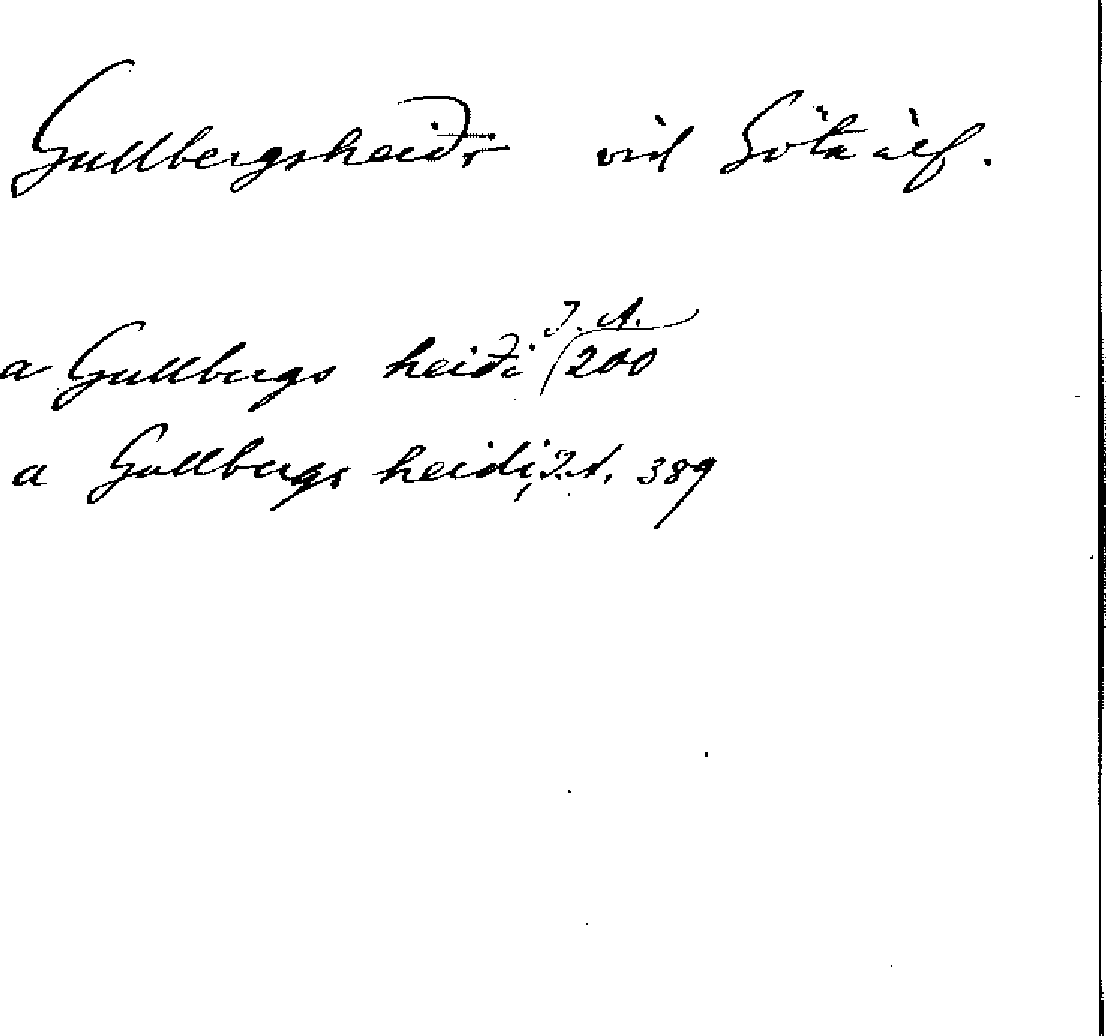 Gullbergsheiðr vid Göta älf.
a Gullbergs heiði J. A. 200
a Gullbergs heidi, 389